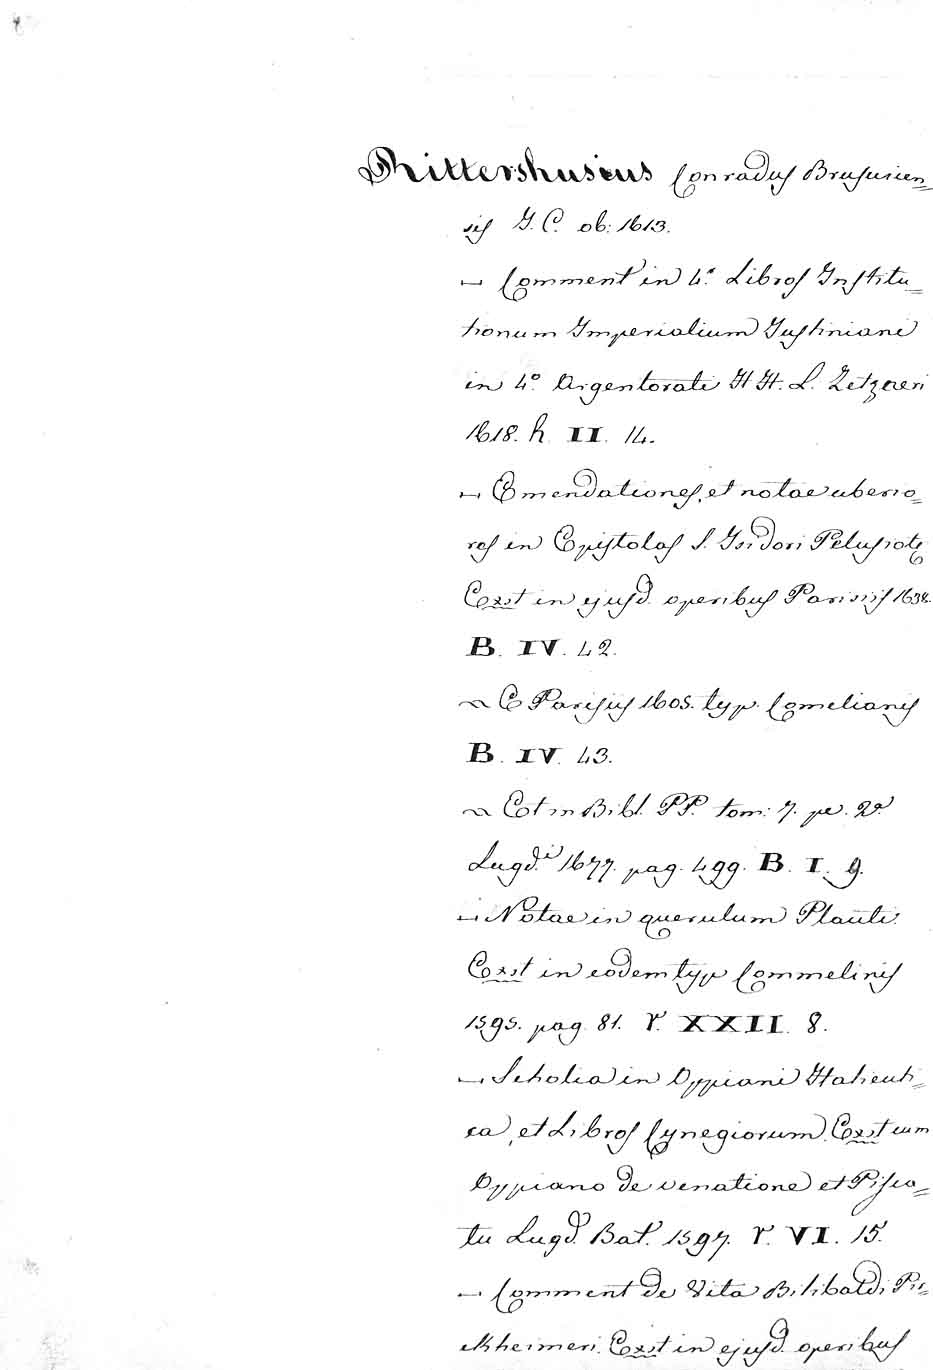 Rittershusius Conradus Brusuicen=
sis J. C. ob: 1613.
— Comment in 4.or Libros Institu=
tionum Imperialium Justiniani
in 4.o Argentorati HH. L. Zetzneri
1618. h. II. 14.
— Emendationes, et notae uberio=
res in Epistolas S. Isidori Pelusiotę
Exst in ejusd. operibus Parisiis 1638.
B. IV. 42.
~ E Parisiis 1605. typ. Comelianis
B. IV. 43.
~ Et in Bibl. PP. tom: 7. pe. 2.a
Lugd.i 1677. pag. 499. B. I. 9.
— Notae in querulum Plauti.
Exst in eodem typ Commelinis
1595. pag. 81. r. XXII. 8.
— Scholia in Oppiani Halieuti=
ca, et Libros Cynegiorum. Exst cum
Oppiano de venatione et Pisca=
tu Lugd. Bat. 1597. r. VI. 15.
— Comment de Vita Bilibaldi Pir=
ckheimeri. Exst in ejusd. operibus